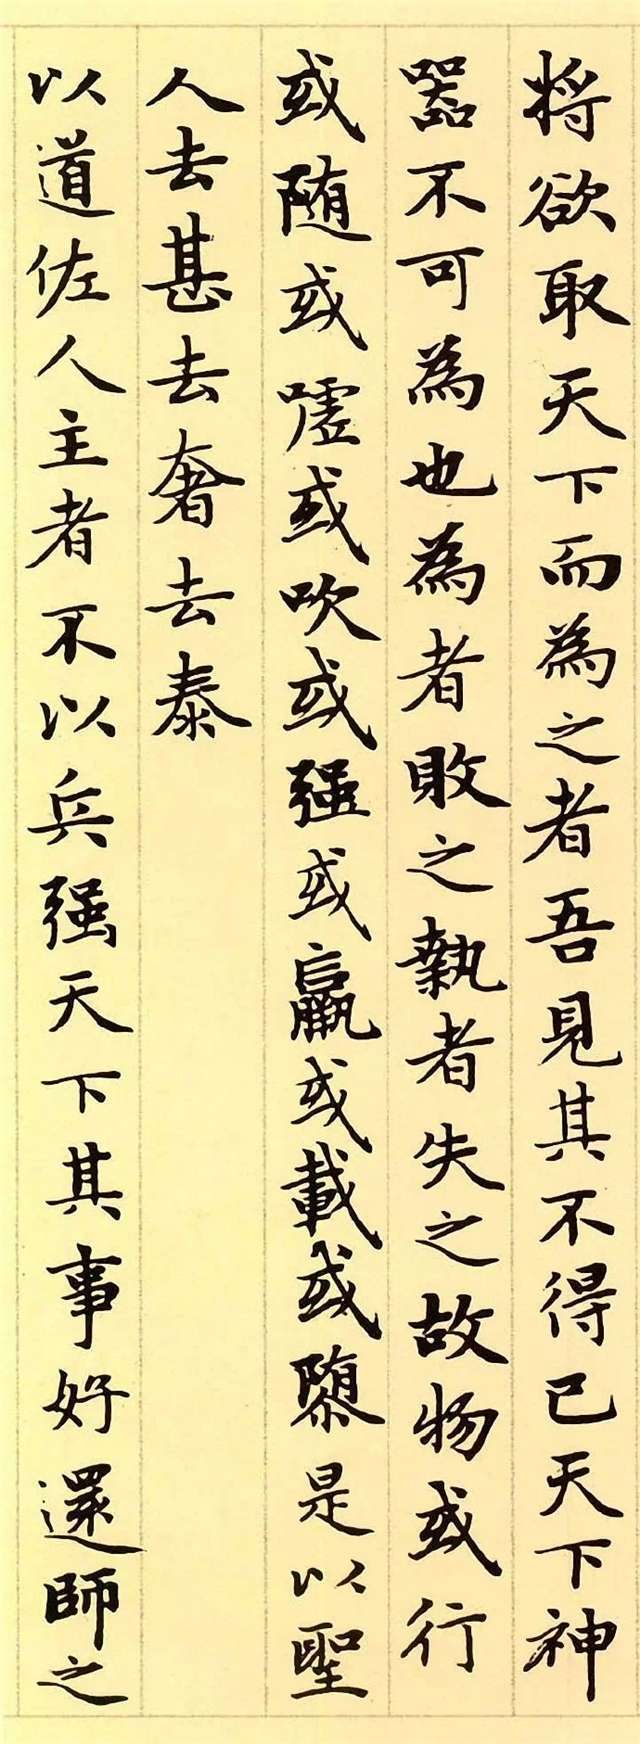 將欲取天下而為之者吾見其不得已天下神
器不可為也為者敗之執者失之故物或行
或随或嘘或吹或强或羸或載或隳是以聖
人去甚去奢去泰
以道佐人主者不以兵强天下其事好還師之